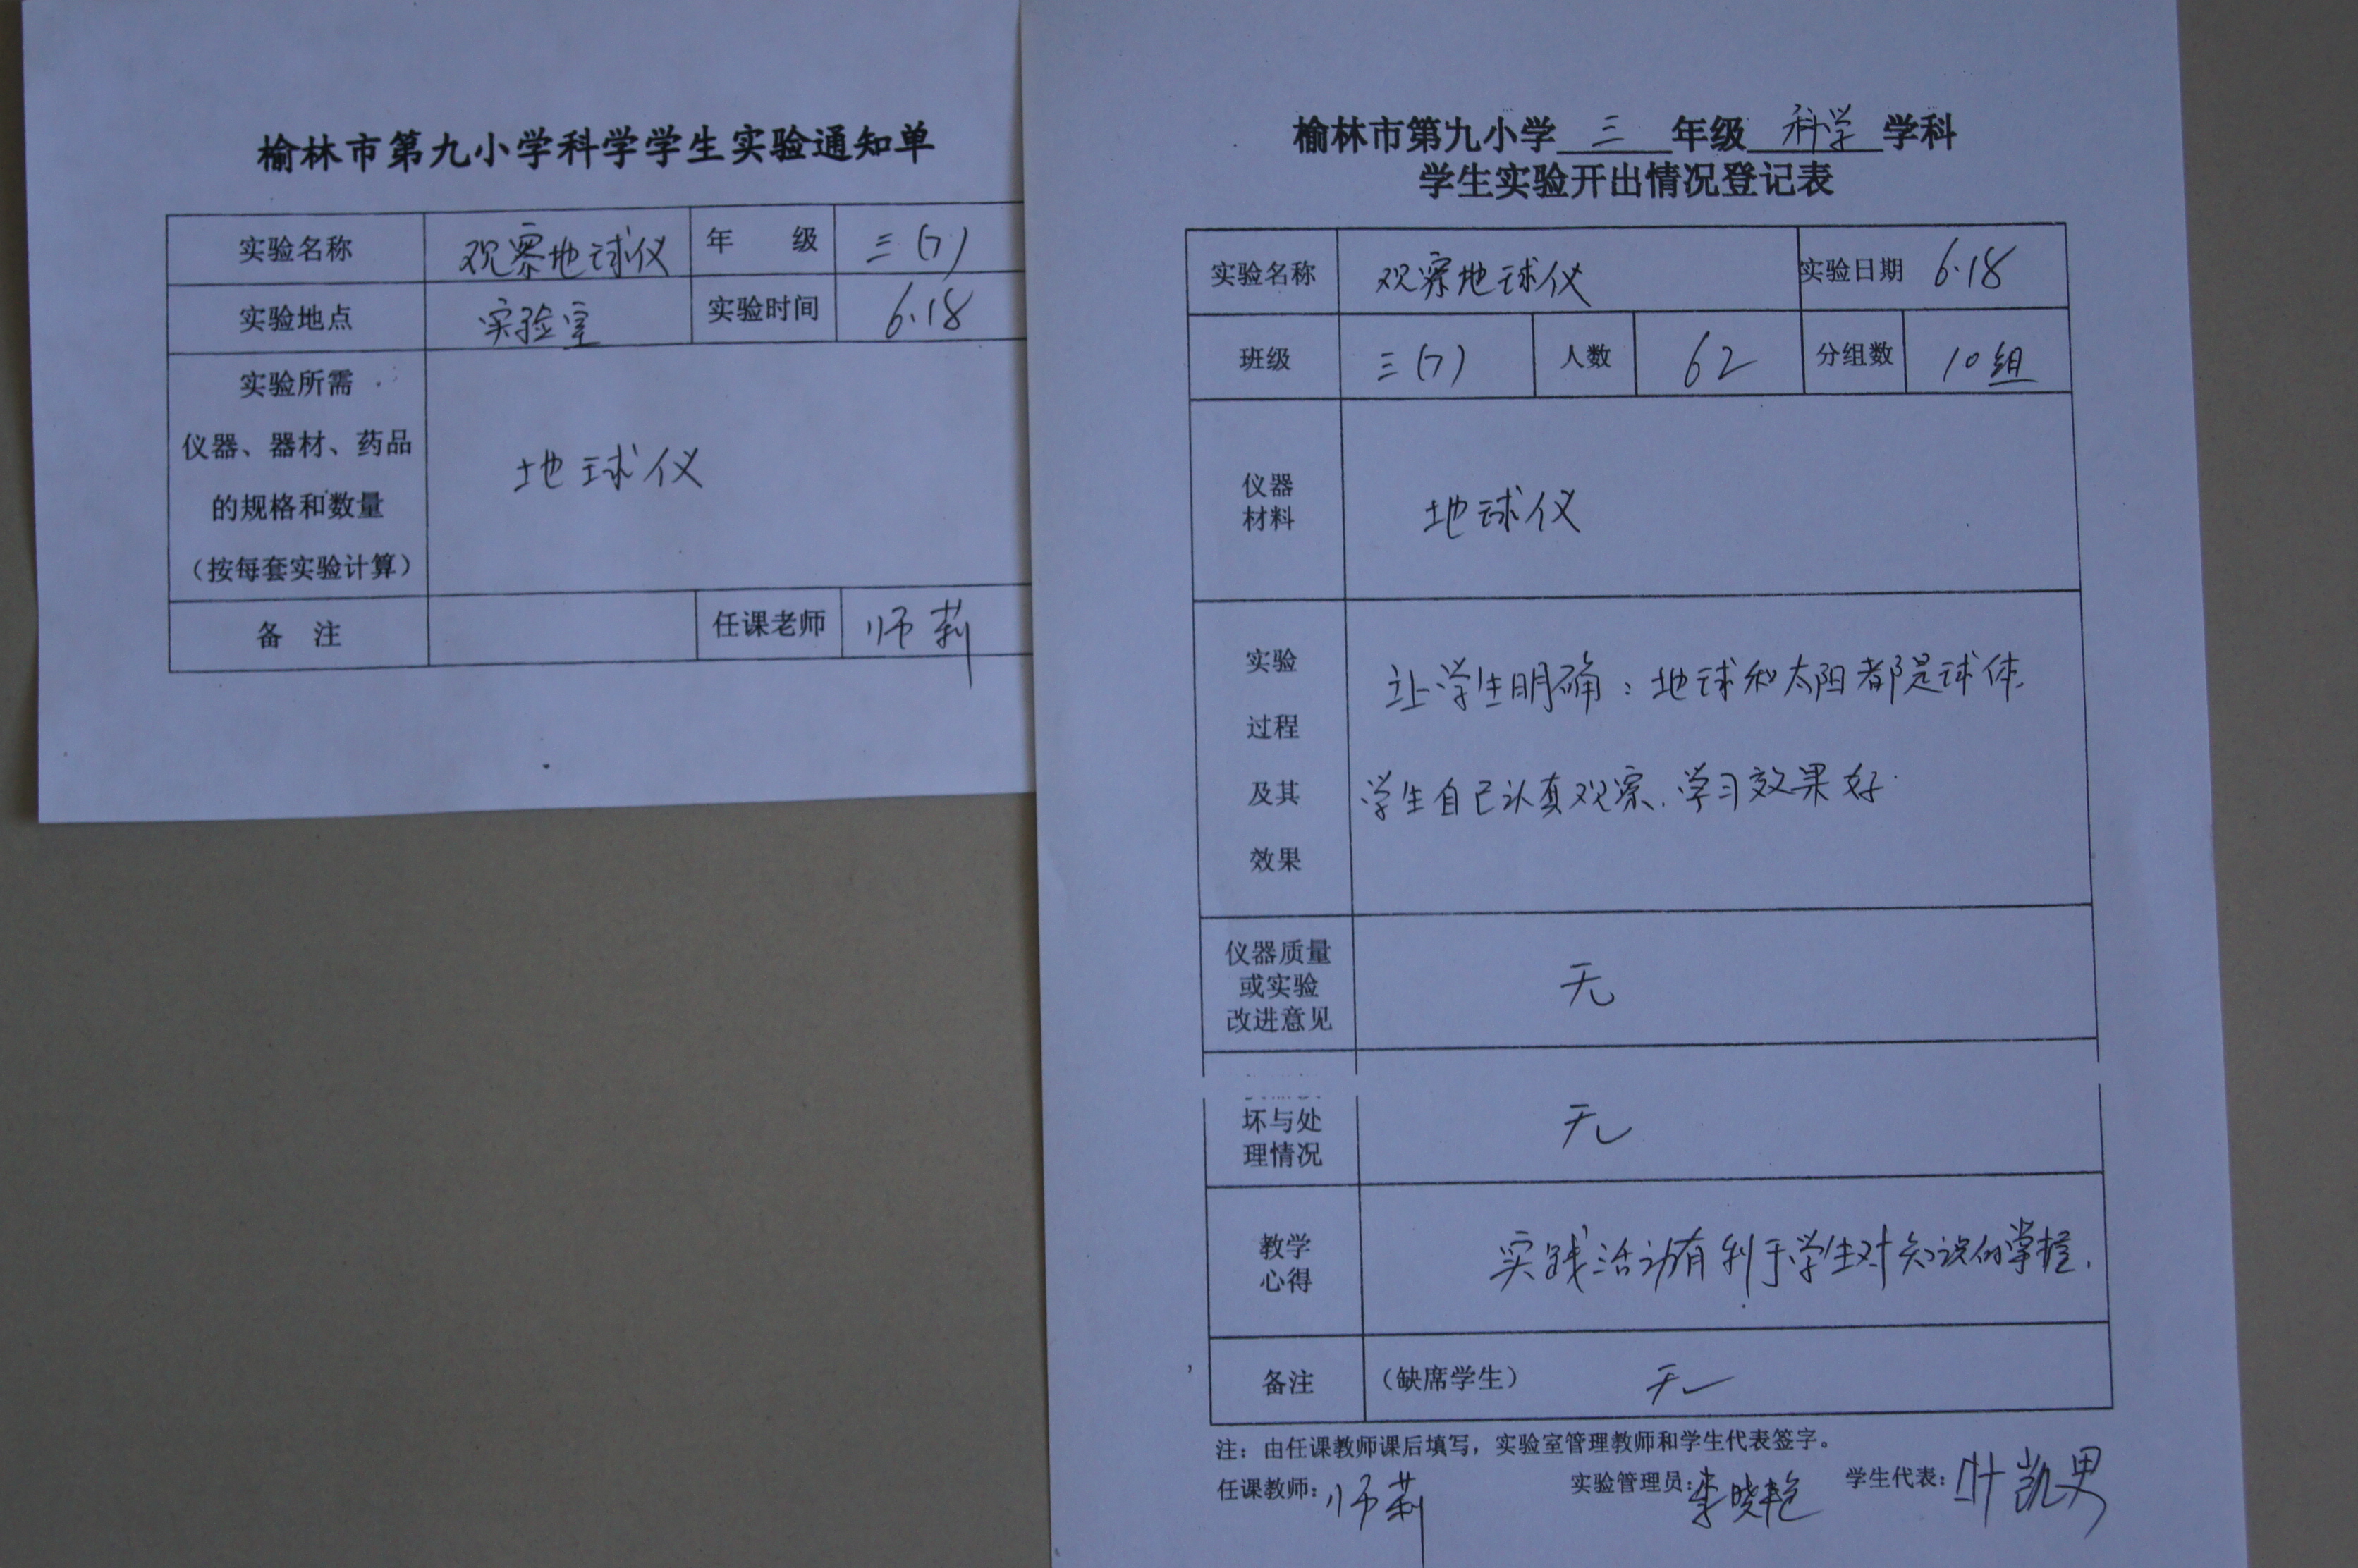 榆林市第九小学科学学生实验通知单
实验名称 观察地球仪 年 级 三(7)
实验地点 实验室 实验时间 6.18
实验所需
仪器、器材、药品
的规格和数量
(按每套实验计算)
地球仪
备 注 任课老师 师莉
榆林市第九小学 三 年级 科学 学科
学生实验开出情况登记表
实验名称 观察地球仪 实验日期 6.18
班级 三(7) 人数 62 分组数 10组
仪器
材料
地球仪
实验
过程
及其
效果
让学生明确:地球和太阳都是球体.
学生自己认真观察.学习效果好.
仪器质量
或实验
改进意见
无
坏与处
理情况
无
教学
心得
实践活动有利于学生对知识的掌握.
备注 (缺席学生) 无
注:由任课教师课后填写,实验室管理教师和学生代表签字。
任课教师:师莉 实验管理员:李晓艳 学生代表:叶凯男